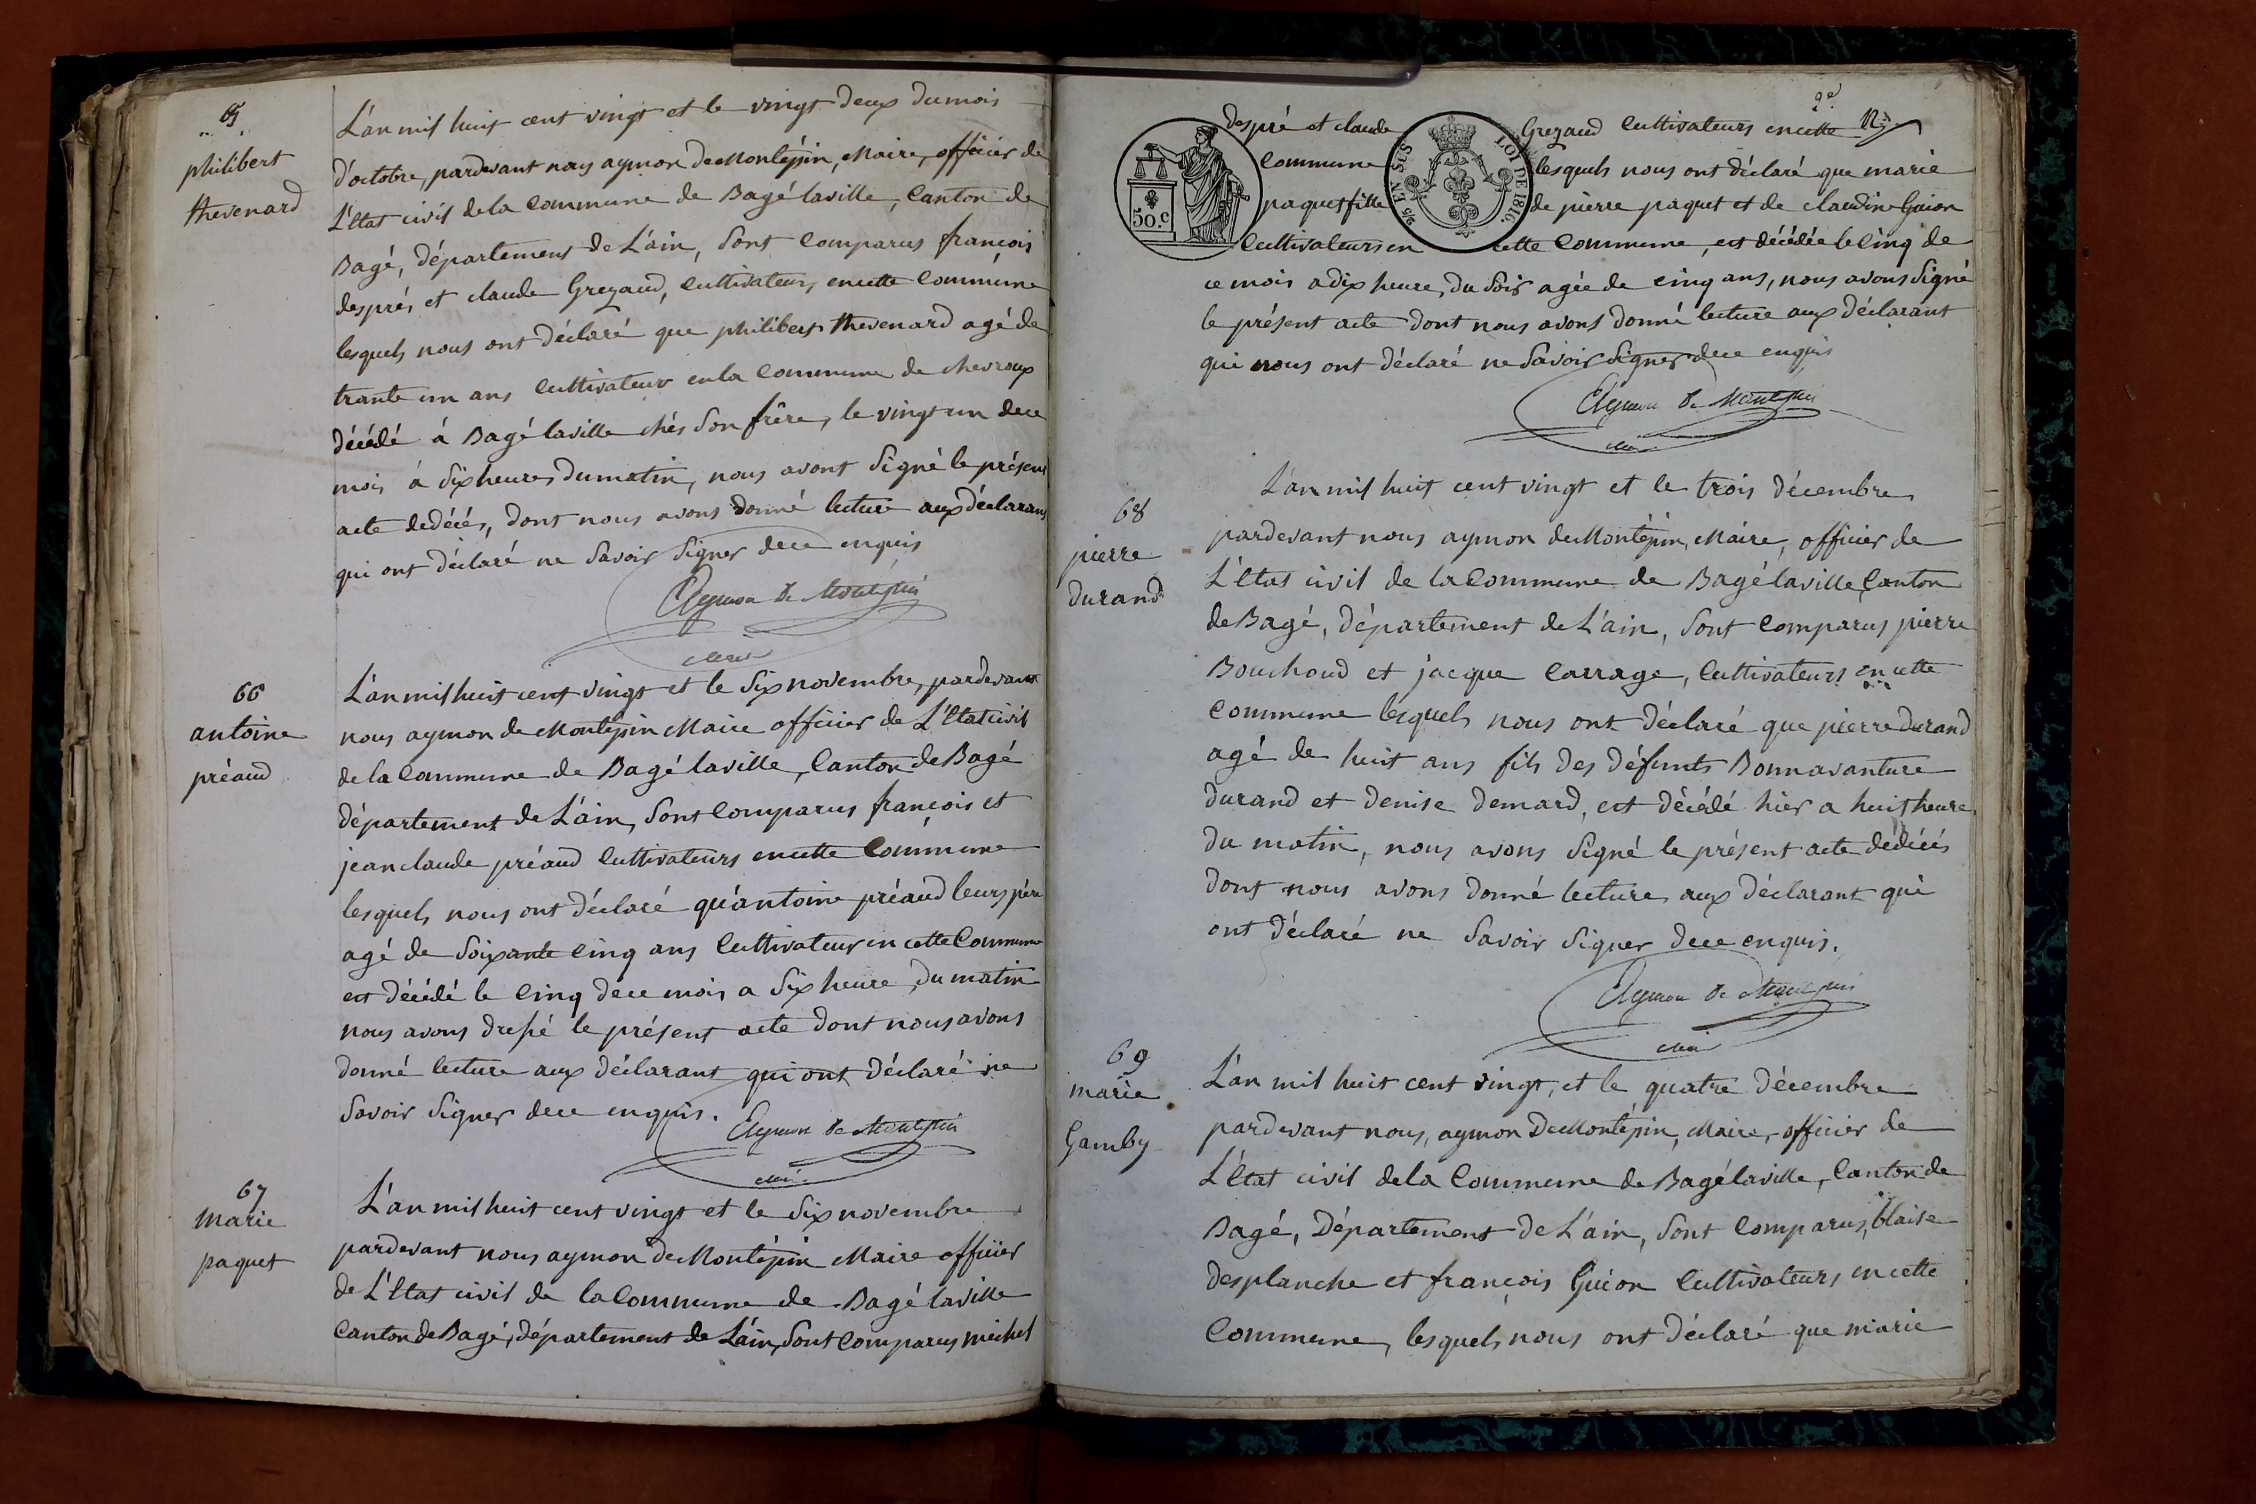 65
philibert
thevenard
L'an mil huit cent vingt et le vingt deux du mois
d'octobre, pardevant nous aymon de Montépin, Maire, officier de
L'Etat civil de la Commune de Bagé laville, Canton de
Bagé, département de L'ain, Sont Comparus françois
després et claude Gregaud, Cultivateurs, en cette Commune
lesquels nous ont déclaré que philibert thevenard agé de
trante un ans Cultivateur en la Commune de chevroux
décédé á Bagé laville chés Son frêre, le vingt un dece
mois á Six heures du matin, nous avont Signé le présent
acte de décés, dont nous avons donné lecture aux déclarans
qui ont déclaré ne Savoir Signer dece enquis
Aymon De Montépin
Maire
66
antoine
préaud
L'an mil huit cent vingt et le Six novembre, pardevant
nous aymon de Montépin Maire officier de L'Etat civil
de la Commune de Bagé laville, Canton de Bagé
département de L'ain, Sont Comparus françois et
jean claude préaud Cultivateurs en cette Commune
lesquels nous ont déclaré qu'antoine préaud leurs père
agé de Soixante Cinq ans Cultivateur en cette Commune
est décédé le Cinq dece mois a Six heure du matin
nous avons dressé le présent acte dont nous avons
donné lecture aux déclarant qui ont déclaré ne
Savoir Signer dece enquis.
Aymon De Montépin
Maire
67
marie
paquet
L'an mil huit cent vingt et le Six novembre
pardevant nous aymon de Montépin Maire officier
de L'Etat civil de la Commune de Bagé laville
Canton de Bagé, département de L'ain, Sont Comparus michel
12
despré et claude Gregaud Cultivateurs en cette
Commune lesquels nous ont déclaré que marie
paquet fille de pierre paquet et de claudine Guion
Cultivateurs en cette Commune, est décédée le Cinq de
ce mois a dix heure, du Soir agée de cinq ans, nous avons Signé
le présent acte dont nous avons donné lecture aux déclarant
qui nous ont déclaré ne Savoir Signer dece enquis
50.c
25 EN SUS
LOI DE 1816.
Aymon De Montépin
Maire
68
pierre
durand
L'an mil huit cent vingt et le trois décembre,
pardevant nous aymon de Montépin, Maire, officier de
L'Etat civil de la Commune de Bagé laville, Canton
de Bagé, département de L'ain, Sont Comparus pierre
Bouchoud et jacque Carrage, Cultivateurs en cette
Commune lesquels nous ont déclaré que pierre durand
agé de huit ans fils des défunts Bonnavanture
durand et denise demard, est décédé hier a huit heure
du matin, nous avons Signé le présent acte dédécés
dont nous avons donné lecture aux déclarant qui
ont déclaré ne Savoir Signer dece enquis.
Aymon De Montépin
Maire
69
marie
Gamby
L'an mil huit cent vingt, et le quatre décembre
pardevant nous, aymon De Montépin, Maire, officier de
L'état civil de la Commune de Bagé laville, Canton de
Bagé, Département de L'ain, Sont Comparus, blaise
desplanche et françois Guion Cultivateurs, en cette
Commune, lesquels nous ont déclaré que marie